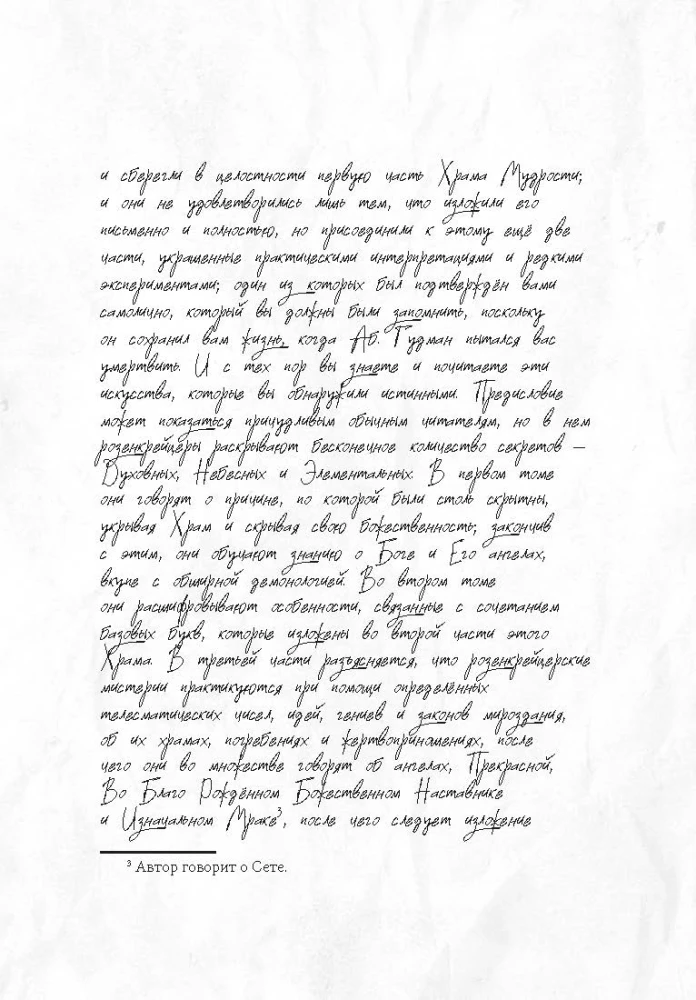 и сберегли в целостности первую часть Храма Мудрости;
и они не удовлетворились лишь тем, что изложили его
письменно и полностью, но присоединили к этому ещё две
части, украшенные практическими интерпретациями и редкими
экспериментами; один из которых был подтверждён вами
самолично, который вы должны были запомнить, поскольку
он сохранил вам жизнь, когда Аб. Гудман пытался вас
умертвить. И с тех пор вы знаете и почитаете эти
искусства, которые вы обнаружили истинными. Предисловие
может показаться причудливым обычным читателям, но в нем
розенкрейцеры раскрывают бесконечное количество секретов –
Духовных, Небесных и Элементальных. В первом томе
они говорят о причине, по которой были столь скрытны,
укрывая Храм и скрывая свою божественность; закончив
с этим, они обучают знанию о Боге и Его ангелах,
вкупе с обширной демонологией. Во втором томе
они расшифровывают особенности, связанные с сочетанием
базовых букв, которые изложены во второй части этого
Храма. В третьей части разъясняется, что розенкрейцерские
мистерии практикуются при помощи определённых
телесматических чисел, идей, гениев и законов мироздания,
об их храмах, погребениях и жертвоприношениях, после
чего они во множестве говорят об ангелах, Прекрасной,
Во Благо Рождённом Божественном Наставнике
и Изначальном Мраке³, после чего следует изложение
³ Автор говорит о Сете.